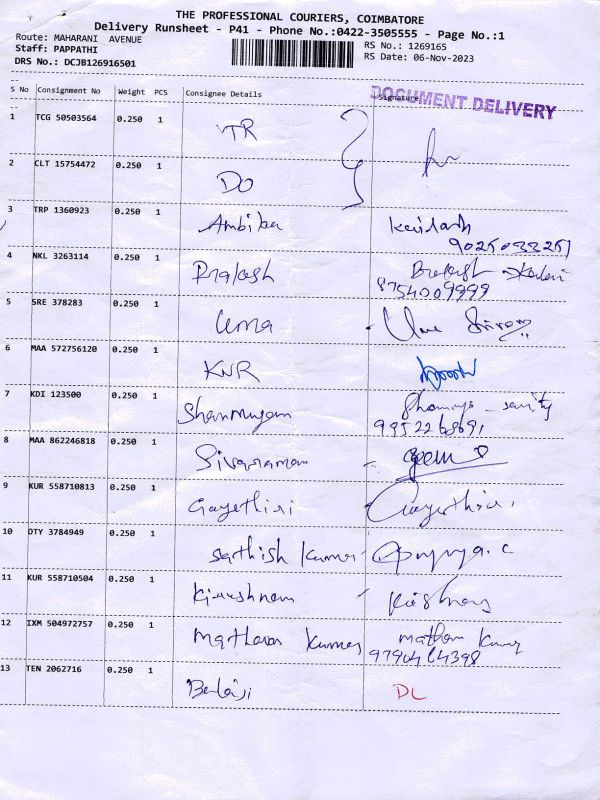 THE PROFESSIONAL COURIERS, COIMBATORE
Delivery Runsheet - P41 - Phone No.:0422-3505555 - Page No.:1
Route: MAHARANI AVENUE
RS No.: 1269165
Staff: PAPPATHI
RS Date: 06-Nov-2023
DRS No.: DCJB126916501
S No Consignment No Weight PCS Consignee Details Signature
DOCUMENT DELIVERY
1 TCG 50503564 0.250 1 TR
2 CLT 15754472 0.250 1 DO
3 TRP 1360923 0.250 1 Ambika
4 NKL 3263114 0.250 1 Prakash
8754009999
5 SRE 378283 0.250 1 Uma
6 MAA 572756120 0.250 1 KNR
7 KDI 123500 0.250 1 Shanmugam
8 MAA 862246818 0.250 1 Sivaraman
9 KUR 558710813 0.250 1 Gayethiri Gayethiri
10 OTY 3784949 0.250 1 Sarthish Kumar
11 KUR 558710504 0.250 1
12 IXM 504972757 0.250 1 Matharan Kumar
9790464398
13 TEN 2062716 0.250 1 Balaji DL